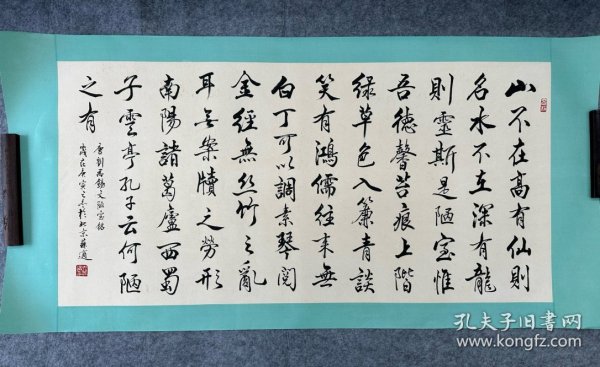 山不在高有仙則
名水不在深有龍
則靈斯是陋室惟
吾德馨苔痕上階
緑草色入簾青談
笑有鴻儒往来無
白丁可以調素琴閲
金經無丝竹之亂
耳无案牘之勞形
南陽諸葛廬西蜀
子雲亭孔子云何陋
之有
唐劉禹錫文陋室銘
歲在庚寅之冬於北京蘇適
孔夫子旧书网
www.kongfz.com